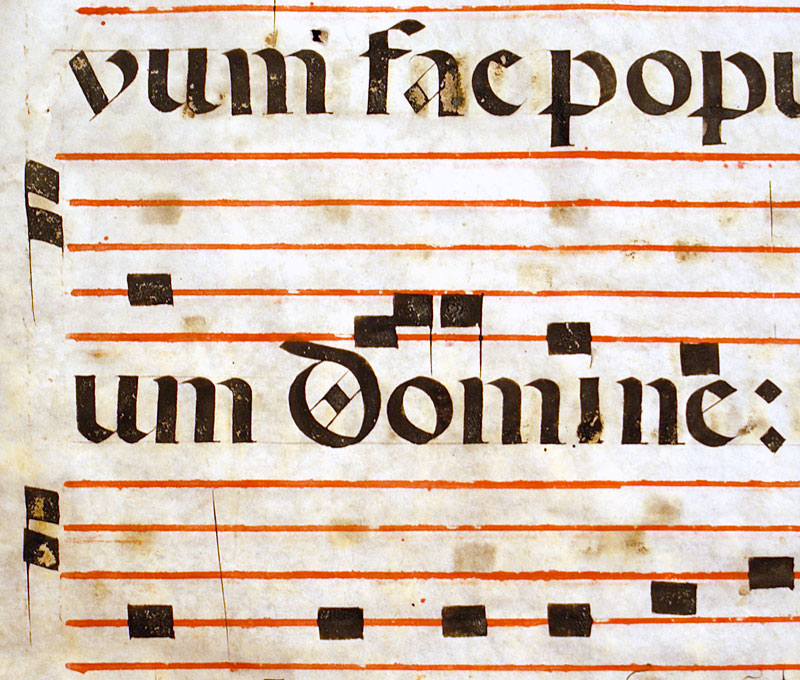 vum fac popu
um domine: